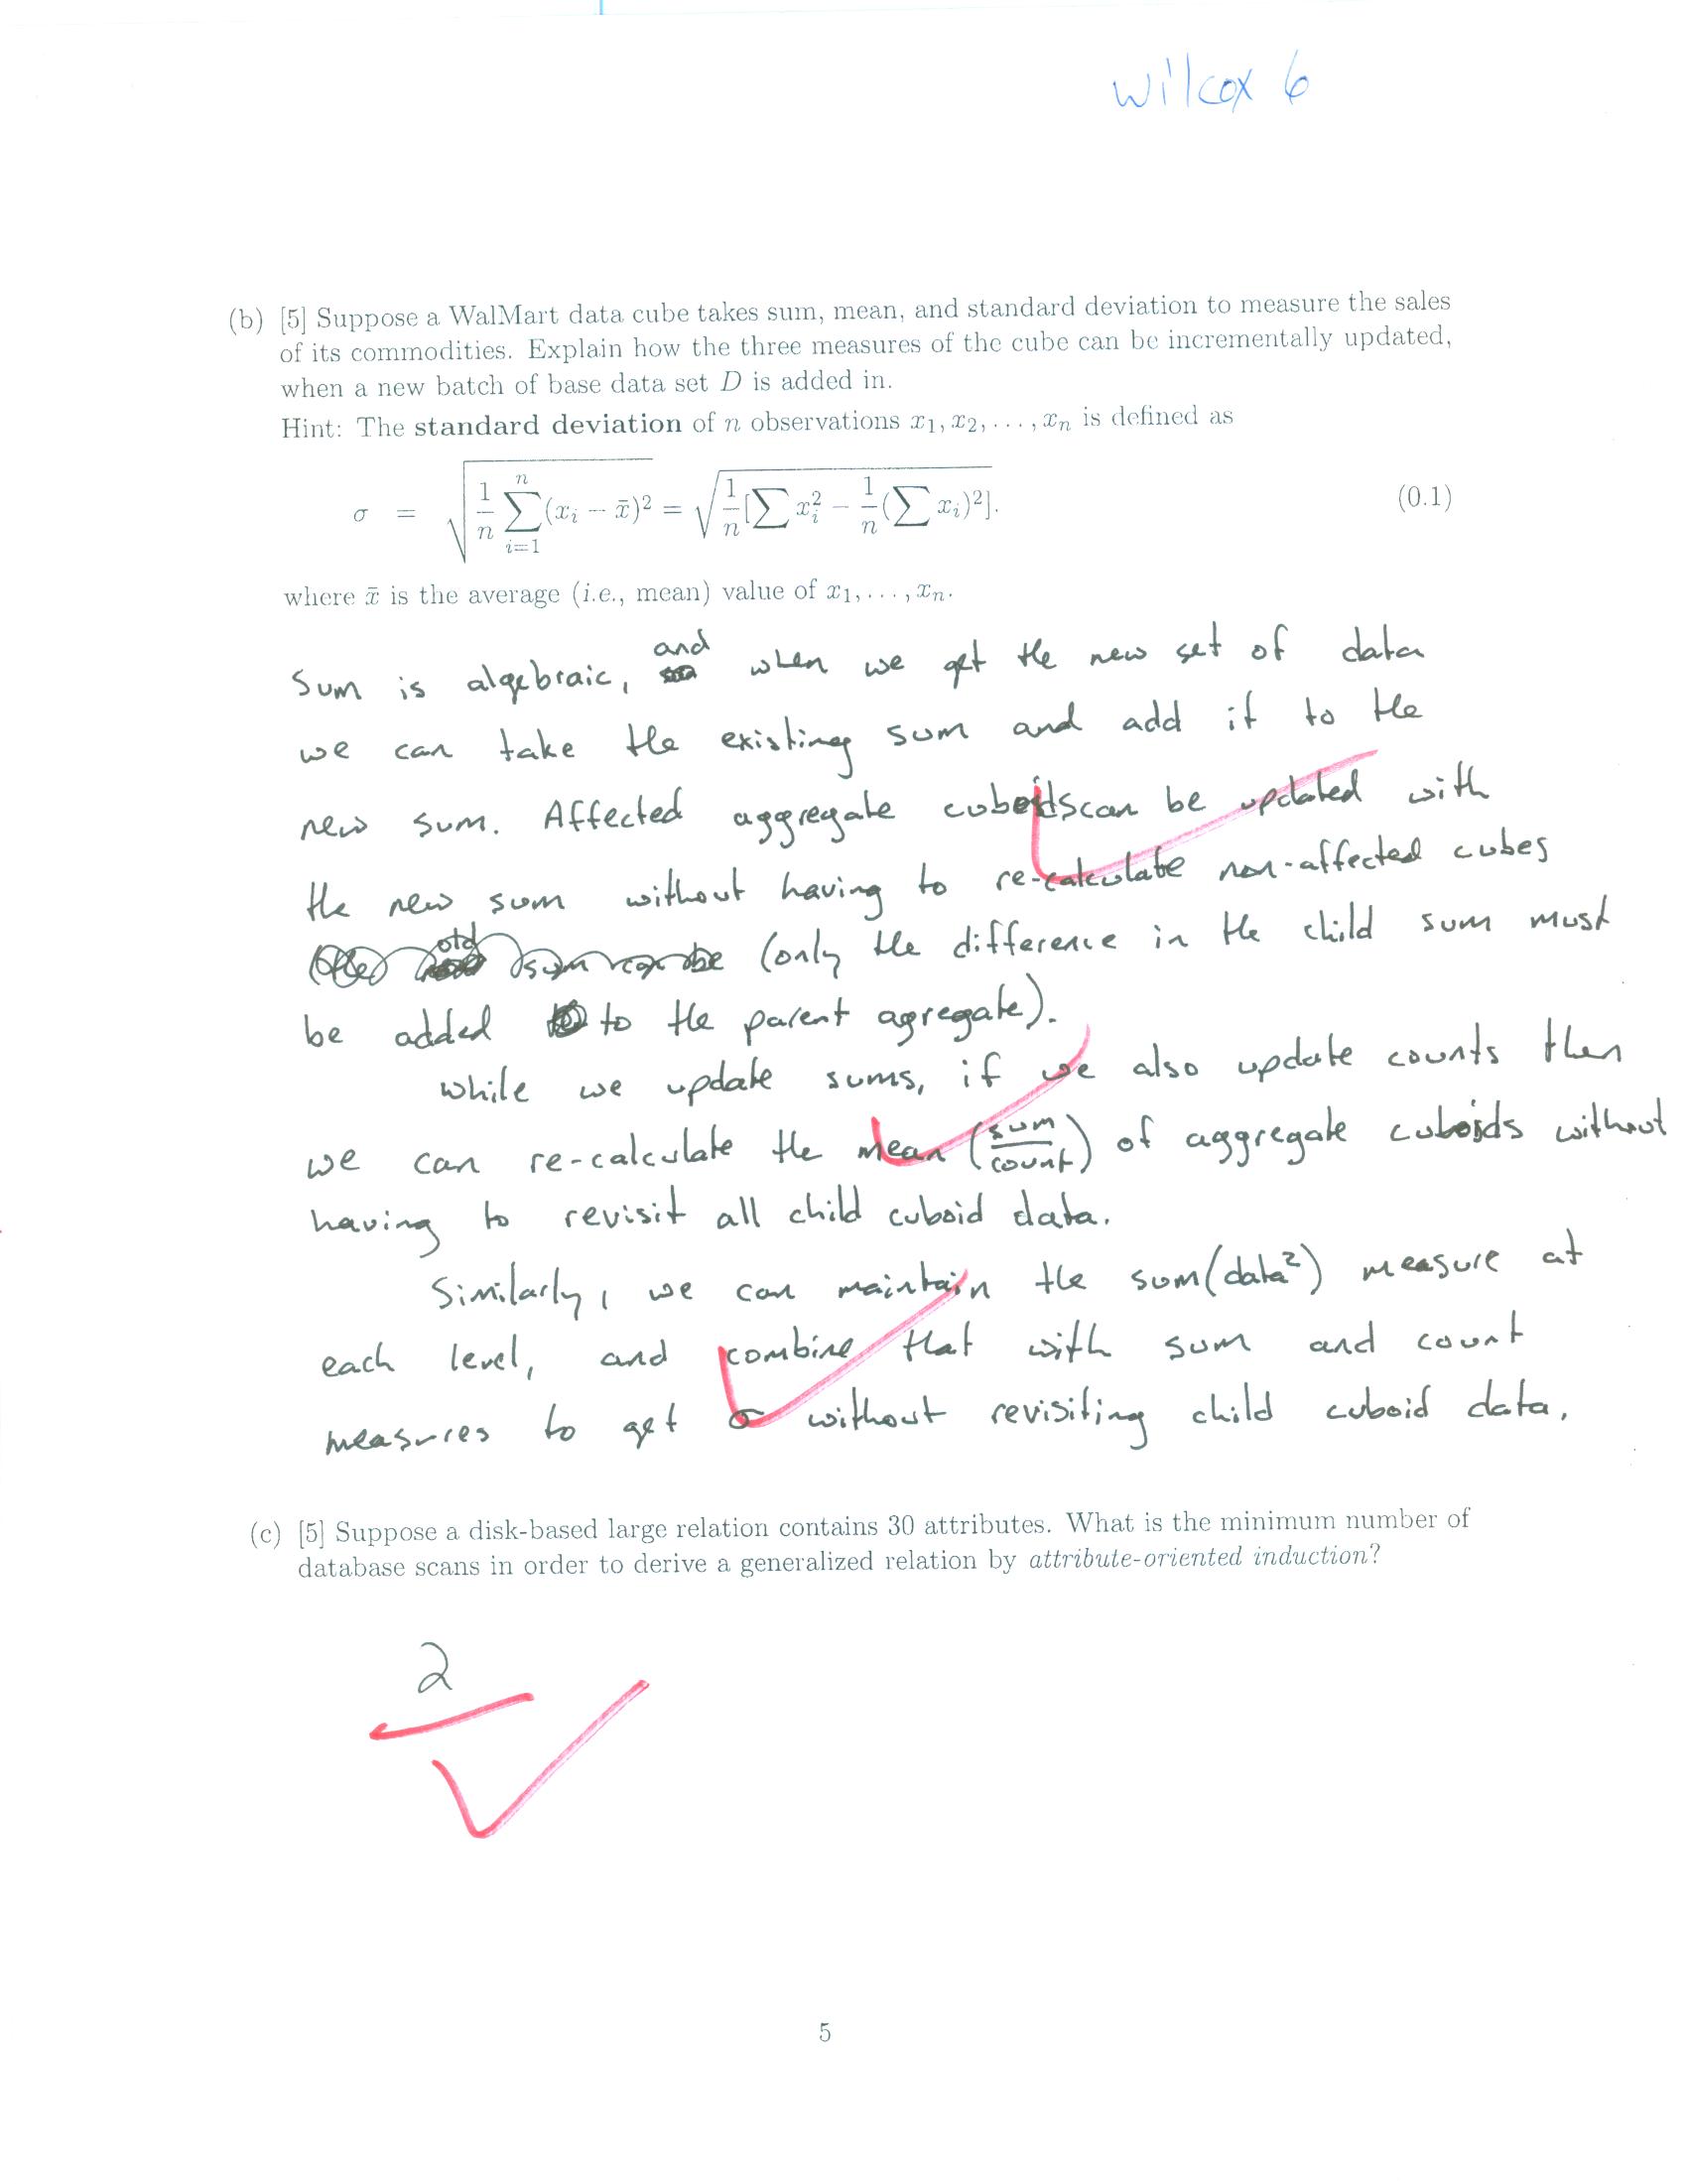 Wilcox 6
(b) [5] Suppose a WalMart data cube takes sum, mean, and standard deviation to measure the sales
of its commodities. Explain how the three measures of the cube can be incrementally updated,
when a new batch of base data set D is added in.
Hint: The standard deviation of n observations x₁, x₂, . . . , xₙ is defined as
σ = √(1/n ∑ᵢ₌₁ⁿ (xᵢ − x̄)²) = √(1/n [∑ xᵢ² − 1/n (∑ xᵢ)²]). (0.1)
where x̄ is the average (i.e., mean) value of x₁, . . . , xₙ.
Sum is algebraic, and when we get the new set of data
we can take the existing sum and add it to the
new sum. Affected aggregate cuboids can be updated with
the new sum without having to re-calculate non-affected cubes
(only the difference in the child sum must
be added to the parent agregate).
While we update sums, if we also update counts then
we can re-calculate the mean (sum/count) of aggregate cuboids without
having to revisit all child cuboid data.
Similarly, we can maintain the sum(data²) measure at
each level, and combine that with sum and count
measures to get σ without revisiting child cuboid data.
(c) [5] Suppose a disk-based large relation contains 30 attributes. What is the minimum number of
database scans in order to derive a generalized relation by attribute-oriented induction?
2
5